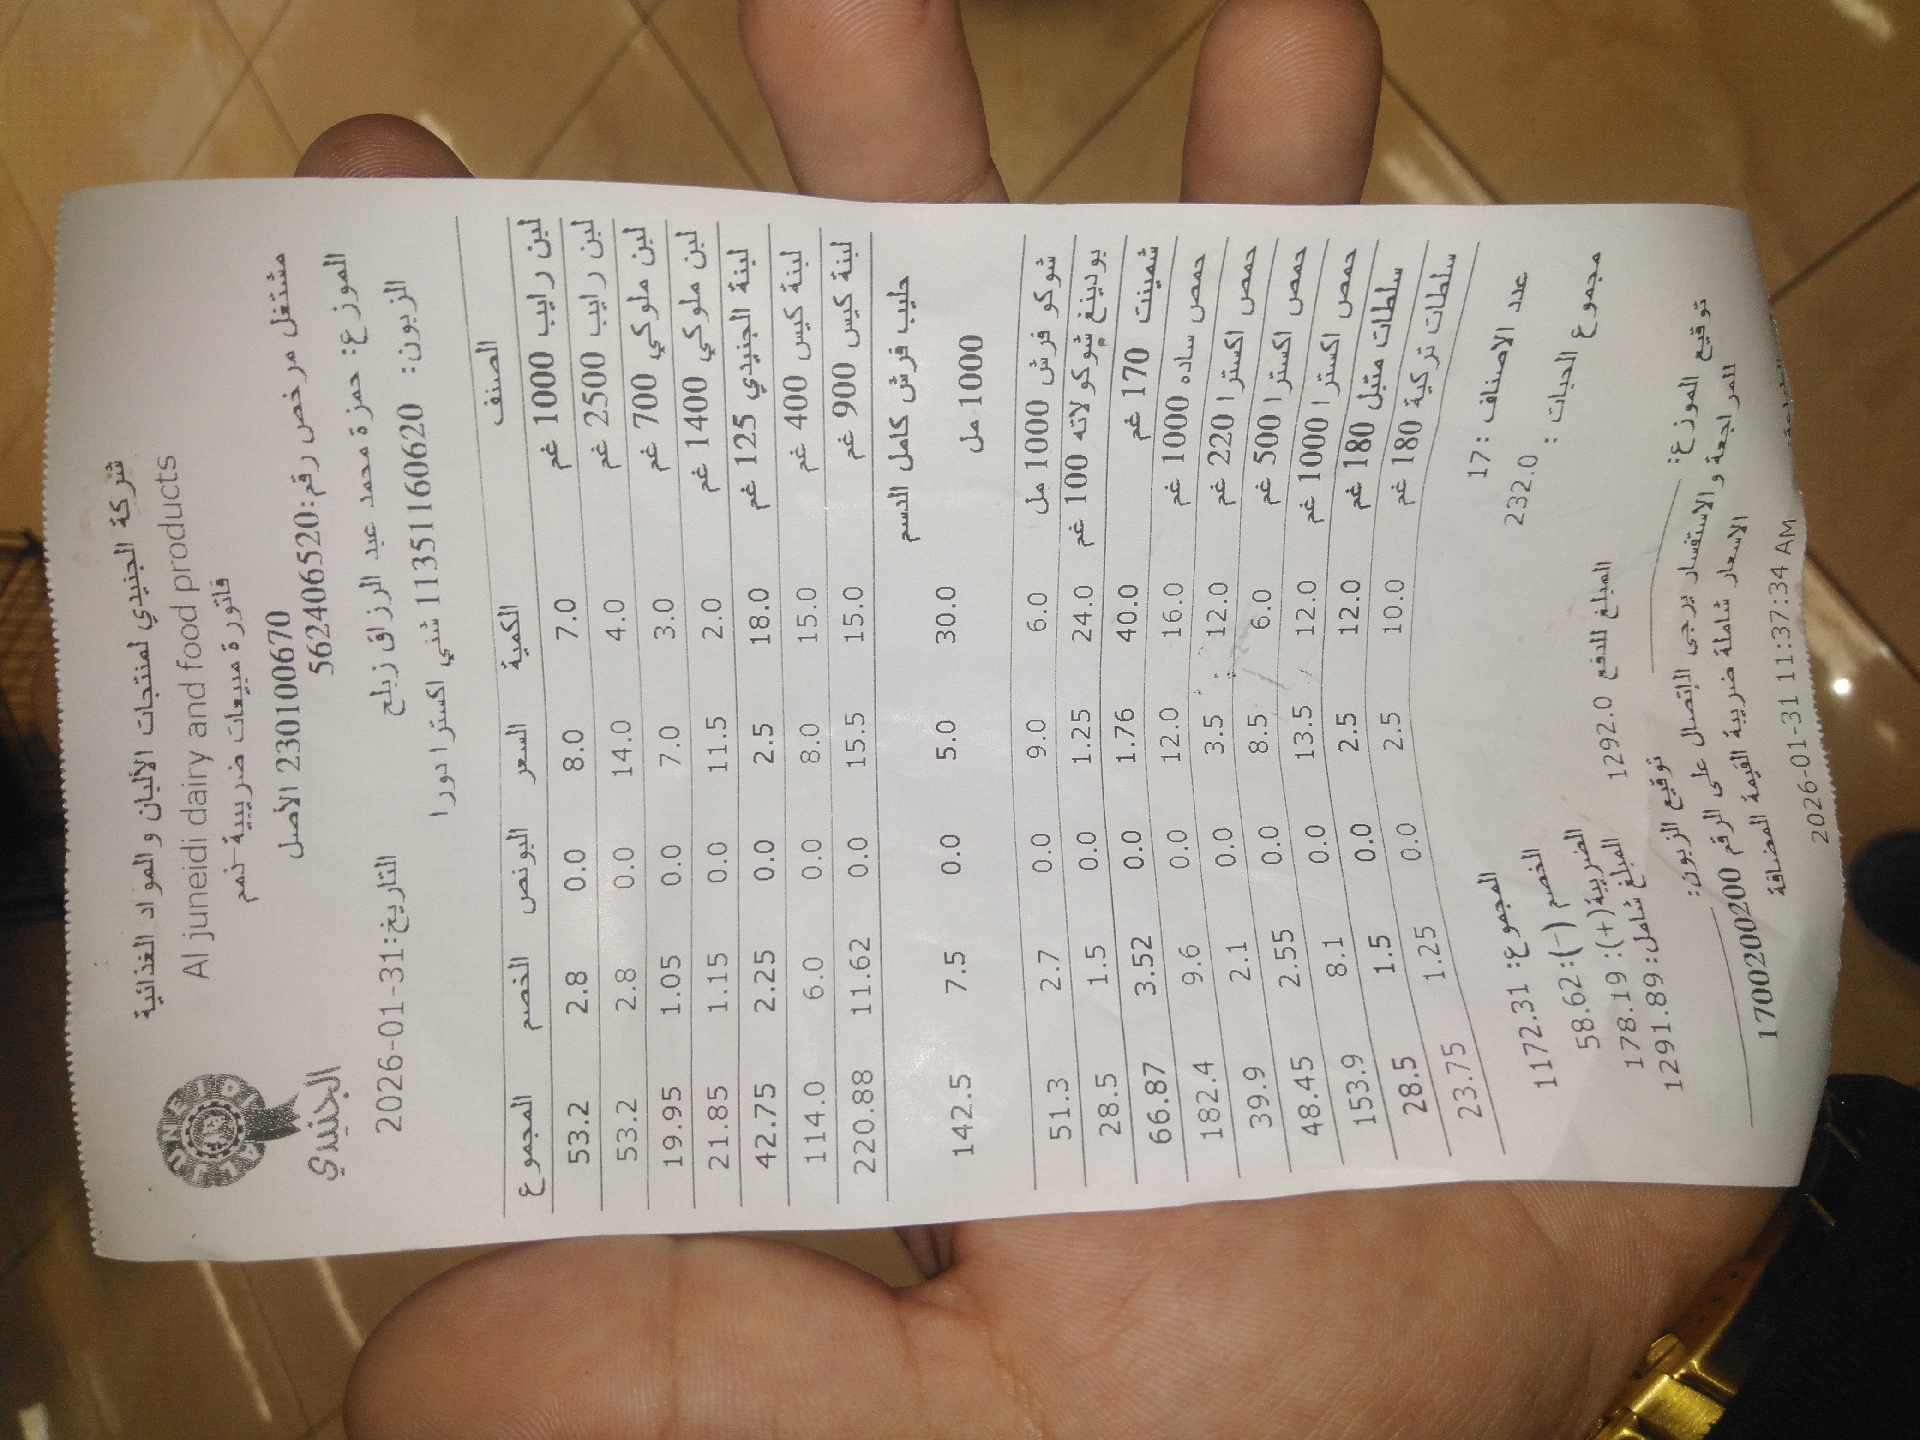 شركة الجنيدي لمنتجات الألبان والمواد الغذائية
Al juneidi dairy and food products
فاتورة مبيعات ضريبية-ذمم
AL JUNEIDI
الجنيدي
230100670 الأصل
مشتغل مرخص رقم:562406520
الموزع: حمزة محمد عبد الرزاق زبلح
التاريخ:2026-01-31
الزبون: 11351160620 شني اكسترا دورا
الصنف الكمية السعر البونص الخصم المجموع
لبن رايب 1000 غم 7.0 8.0 0.0 2.8 53.2
لبن رايب 2500 غم 4.0 14.0 0.0 2.8 53.2
لبن ملوكي 700 غم 3.0 7.0 0.0 1.05 19.95
لبن ملوكي 1400 غم 2.0 11.5 0.0 1.15 21.85
لبنة الجنيدي 125 غم 18.0 2.5 0.0 2.25 42.75
لبنة كيس 400 غم 15.0 8.0 0.0 6.0 114.0
لبنة كيس 900 غم 15.0 15.5 0.0 11.62 220.88
حليب فرش كامل الدسم
1000 مل 30.0 5.0 0.0 7.5 142.5
شوكو فرش 1000 مل 6.0 9.0 0.0 2.7 51.3
بودينغ شوكولاته 100 غم 24.0 1.25 0.0 1.5 28.5
شمينت 170 غم 40.0 1.76 0.0 3.52 66.87
حمص ساده 1000 غم 16.0 12.0 0.0 9.6 182.4
حمص اكسترا 220 غم 12.0 3.5 0.0 2.1 39.9
حمص اكسترا 500 غم 6.0 8.5 0.0 2.55 48.45
حمص اكسترا 1000 غم 12.0 13.5 0.0 8.1 153.9
سلطات متبل 180 غم 12.0 2.5 0.0 1.5 28.5
سلطات تركية 180 غم 10.0 2.5 0.0 1.25 23.75
عدد الاصناف :17
المجموع: 1172.31
مجموع الحبات : 232.0
الخصم (-):58.62
الضريبة(+): 178.19
المبلغ للدفع 1292.0
المبلغ شامل: 1291.89
توقيع الموزع:
توقيع الزبون:
للمراجعة و الاستفسار يرجى الاتصال على الرقم 1700200200
الاسعار شاملة ضريبة القيمة المضافة
2026-01-31 11:37:34 AM